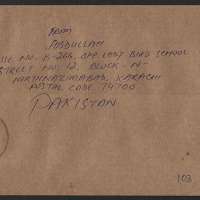 FROM
ABDULLAH
NO. B-266, OPP. LOST BIRD SCHOOL
STREET NO. 12, BLOCK-N-
NORTH NAZIMABAD, KARACHI
POSTAL CODE 74700
PAKISTAN
103